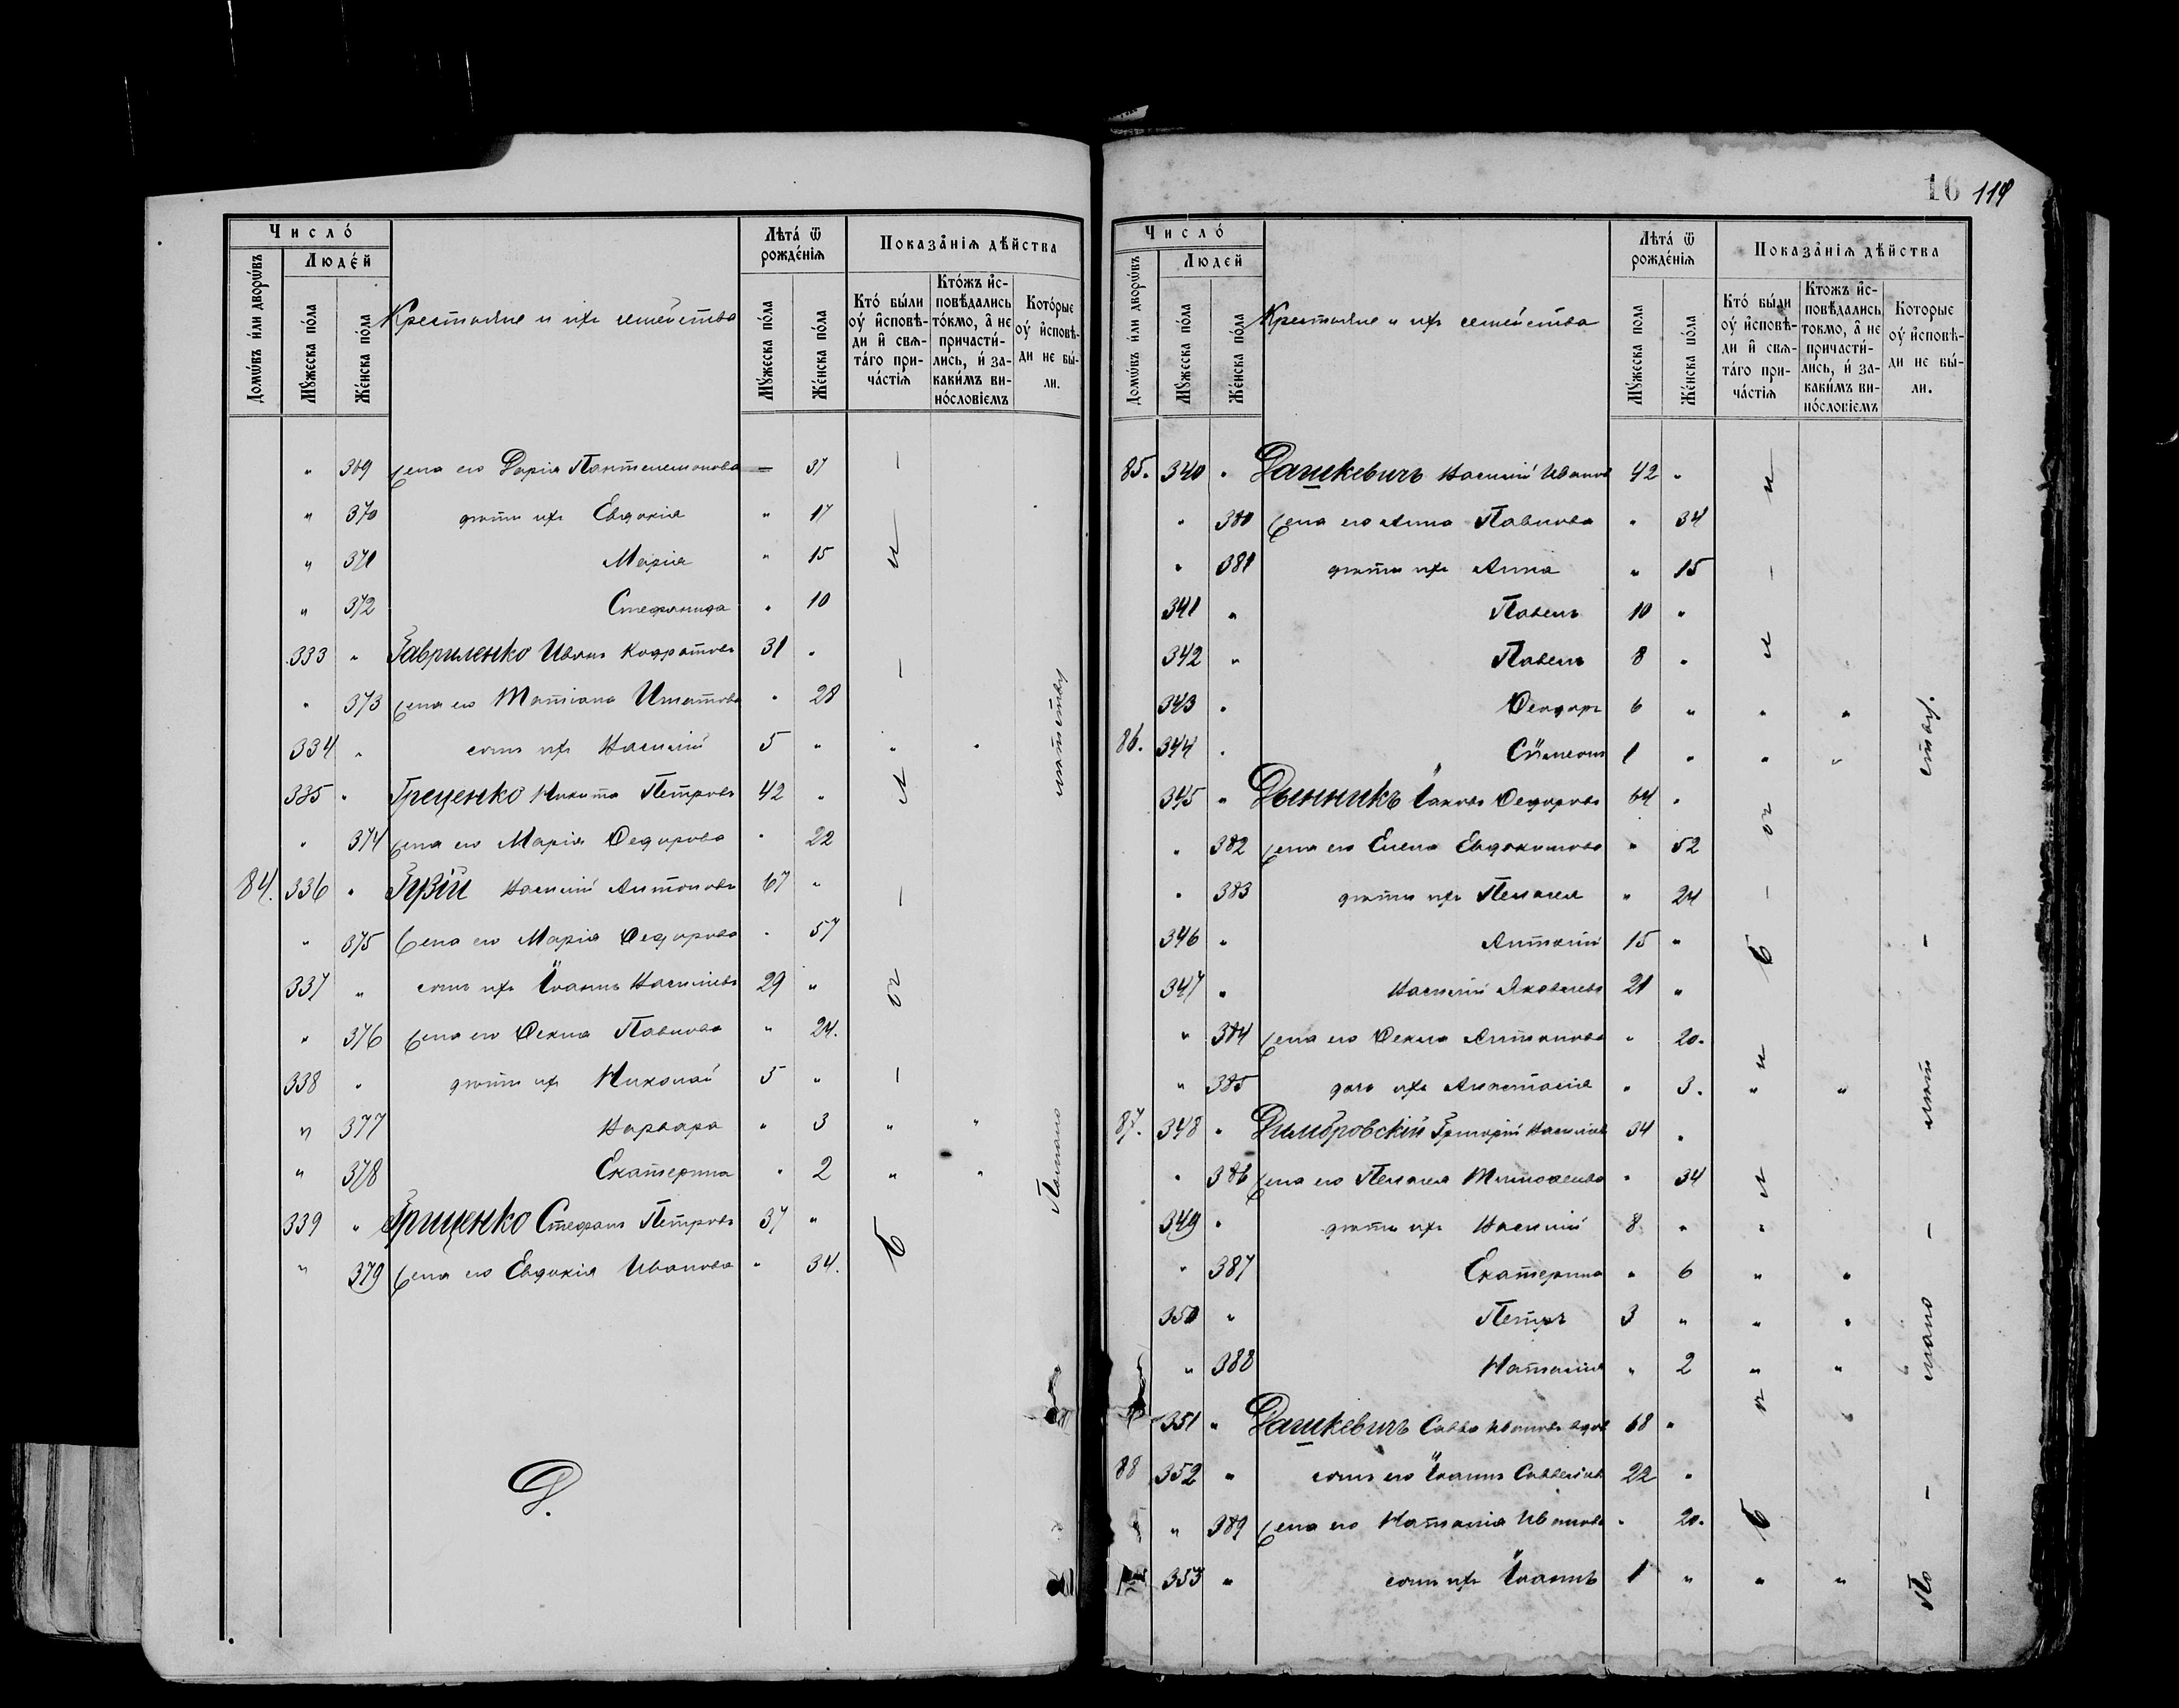 Число́
Людє́й
Домѡ́въ и҆́ли дворѡ́въ
Мꙋ́жеска по́ла
Же́нска по́ла
Крестьяне и ихъ семейства
Лѣта́ ѿ рожде́нїѧ
Мꙋ́жеска по́ла
Же́нска по́ла
Показа̑нїѧ дѣ́йства
Кто́ бы́ли оу҆ и҆сповѣ-
ди и҆ свѧ-
та́го при-
ча́стїѧ
Кто́жъ и҆с-
повѣ́дались
то́кмо, а҆ не
причасти́-
лись, и҆ за-
каки́мъ ви-
носло́вїемъ
Кото́рые
оу҆ и҆сповѣ-
ди не бы́-
ли.
" 369 жена его Дарія Пантелемонова — 37
" 370 дѣти ихъ Евдокія " 17
" 371 Марія " 15
" 372 Стефанида " 10
333 " Гавриленко Иванъ Кодратовъ 31 "
" 373 жена его Татіана Игнатова " 28
334 " сынъ ихъ Василій 5 " " "
335 " Греценко Никита Петровъ 42 "
" 374 жена его Марія Федорова " 22
84. 336 " Гузій Василій Антоновъ 67 "
" 375 жена его Марія Федорова " 57
337 " сынъ ихъ Іоаннъ Васильевъ 29 "
" 376 жена его Фекла Павлова " 24.
338 " дѣти ихъ Николай 5 "
" 377 Варвара " 3 " "
" 378 Екатерина " 2 " "
339 " Гриценко Стефанъ Петровъ 37 "
" 379 жена его Евдокія Иванова " 34.
Д.
16 119
Число́
Людей
Домѡ́въ и҆́ли дворѡ́въ
Мꙋ́жеска по́ла
Же́нска по́ла
Крестьяне и ихъ семейства
Лѣта́ ѿ рожде́нїѧ
Мꙋ́жеска пола
Же́нска по́ла
Показа̑нїѧ дѣ́йства
Кто́ бы́ли оу҆ и҆сповѣ-
ди и҆ свѧ-
та́го при-
ча́стїѧ
Ктожъ и҆с-
повѣ́дались
токмо, а҆ не
причасти́-
лись, и҆ за-
каки́мъ ви-
но́словїемъ
Которые
оу҆ и҆сповѣ-
ди не бы́-
ли.
85. 340 " Дашкевичъ Василій Иванов 42 "
" 380 жена его Анна Павлова " 34
" 381 дѣти ихъ Анна " 15
341 " Павелъ 10 "
342 " Павелъ 8 "
343 " Феодоръ 6 " " "
86. 344 " Сѵмеонъ 1 " " "
345 " Дынникъ Іаковъ Федоровъ 64 "
" 382 жена его Елена Евдокимова " 52
" 383 дѣти ихъ Пелагея " 24
346 " Антоній 15 "
347 " Василій Яковлевъ 21 "
" 384 жена его Фекла Антонова " 20.
" 385 дочь ихъ Анастасія " 3. " "
87. 348 " Димбровскій Григорій Васильев 34 "
" 386 жена его Пелагея Тимофеева " 34
349 " дѣти ихъ Василій 8 " "
" 387 Екатерина " 6 " "
350 " Петръ 3 " " "
" 388 Наталія " 2 " "
351 " Дашкевичъ Савва Ивановъ вдов 68 "
88 352 " сынъ его Іоаннъ Саввеліевъ 22 "
" 389 жена его Наталія Иванова " 20.
353 " сынъ ихъ Іоаннъ 1 " " "